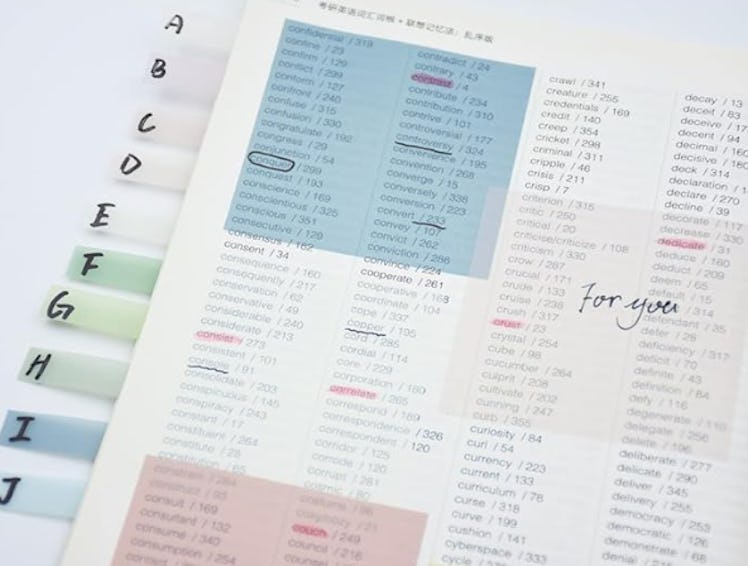 考研英语词汇词根 + 联想记忆法：乱序版
A
B
C
D
E
F
G
H
I
J
confidential / 319
confine / 23
confirm / 129
conflict / 299
conform / 127
confront / 240
confuse / 315
confusion / 330
congratulate / 192
congress / 29
conjunction / 54
conquer / 299
conquest / 193
conscience / 169
conscientious / 325
conscious / 351
consecutive / 129
consensus / 182
consent / 34
consequence / 160
consequently / 217
conservation / 62
conservative / 49
considerable / 240
considerate / 213
consist / 273
consistent / 101
console / 91
consolidate / 203
conspicuous / 145
conspiracy / 243
constant / 17
constituent / 264
constitute / 28
constitution / 65
constrain / 284
construct / 93
consult / 169
consultant / 132
consume / 340
consumption / 254
contradict / 24
contrary / 43
contrast / 4
contribute / 234
contribution / 310
contrive / 101
controversial / 177
controversy / 324
convenience / 195
convention / 268
converge / 15
conversely / 338
conversion / 223
convert / 233
convey / 107
convict / 262
conviction / 286
convince / 224
cooperate / 261
cooperative / 168
coordinate / 104
cope / 337
copper / 195
cord / 285
cordial / 114
core / 229
corporation / 180
correlate / 265
correspond / 189
correspondence / 326
correspondent / 120
corridor / 125
corrode / 120
corrupt / 281
cosmic / 80
costume / 96
couch / 249
council / 216
counsel
crawl / 341
creature / 255
credentials / 169
credit / 140
creep / 354
cricket / 298
criminal / 311
cripple / 46
crisis / 211
crisp / 7
criterion / 315
critic / 250
critical / 20
criticise/criticize / 108
criticism / 330
crow / 287
crucial / 171
crude / 133
cruise / 238
crush / 317
crust / 23
crystal / 254
cube / 98
cucumber / 264
culprit / 208
cultivate / 202
cunning / 247
curb / 355
curiosity / 84
curl / 54
currency / 223
current / 133
curriculum / 78
curse / 318
curve / 199
cushion / 141
cyberspace / 333
cycle
decay / 13
deceit / 83
deceive / 17
decent / 94
decimal / 160
decisive / 180
deck / 314
declaration / 1
declare / 270
decline / 39
decorate / 117
decrease / 330
dedicate / 31
deduce / 160
deduct / 209
deem / 65
default / 15
defect / 314
defendant / 35
defer / 28
deficiency / 317
deficit / 70
definite / 43
definition / 84
defy / 116
degenerate / 110
delegate / 256
delete / 196
deliberate / 277
delicate / 290
deliver / 345
delivery / 255
democracy / 253
democratic / 126
demonstrate / 68
denial
For you